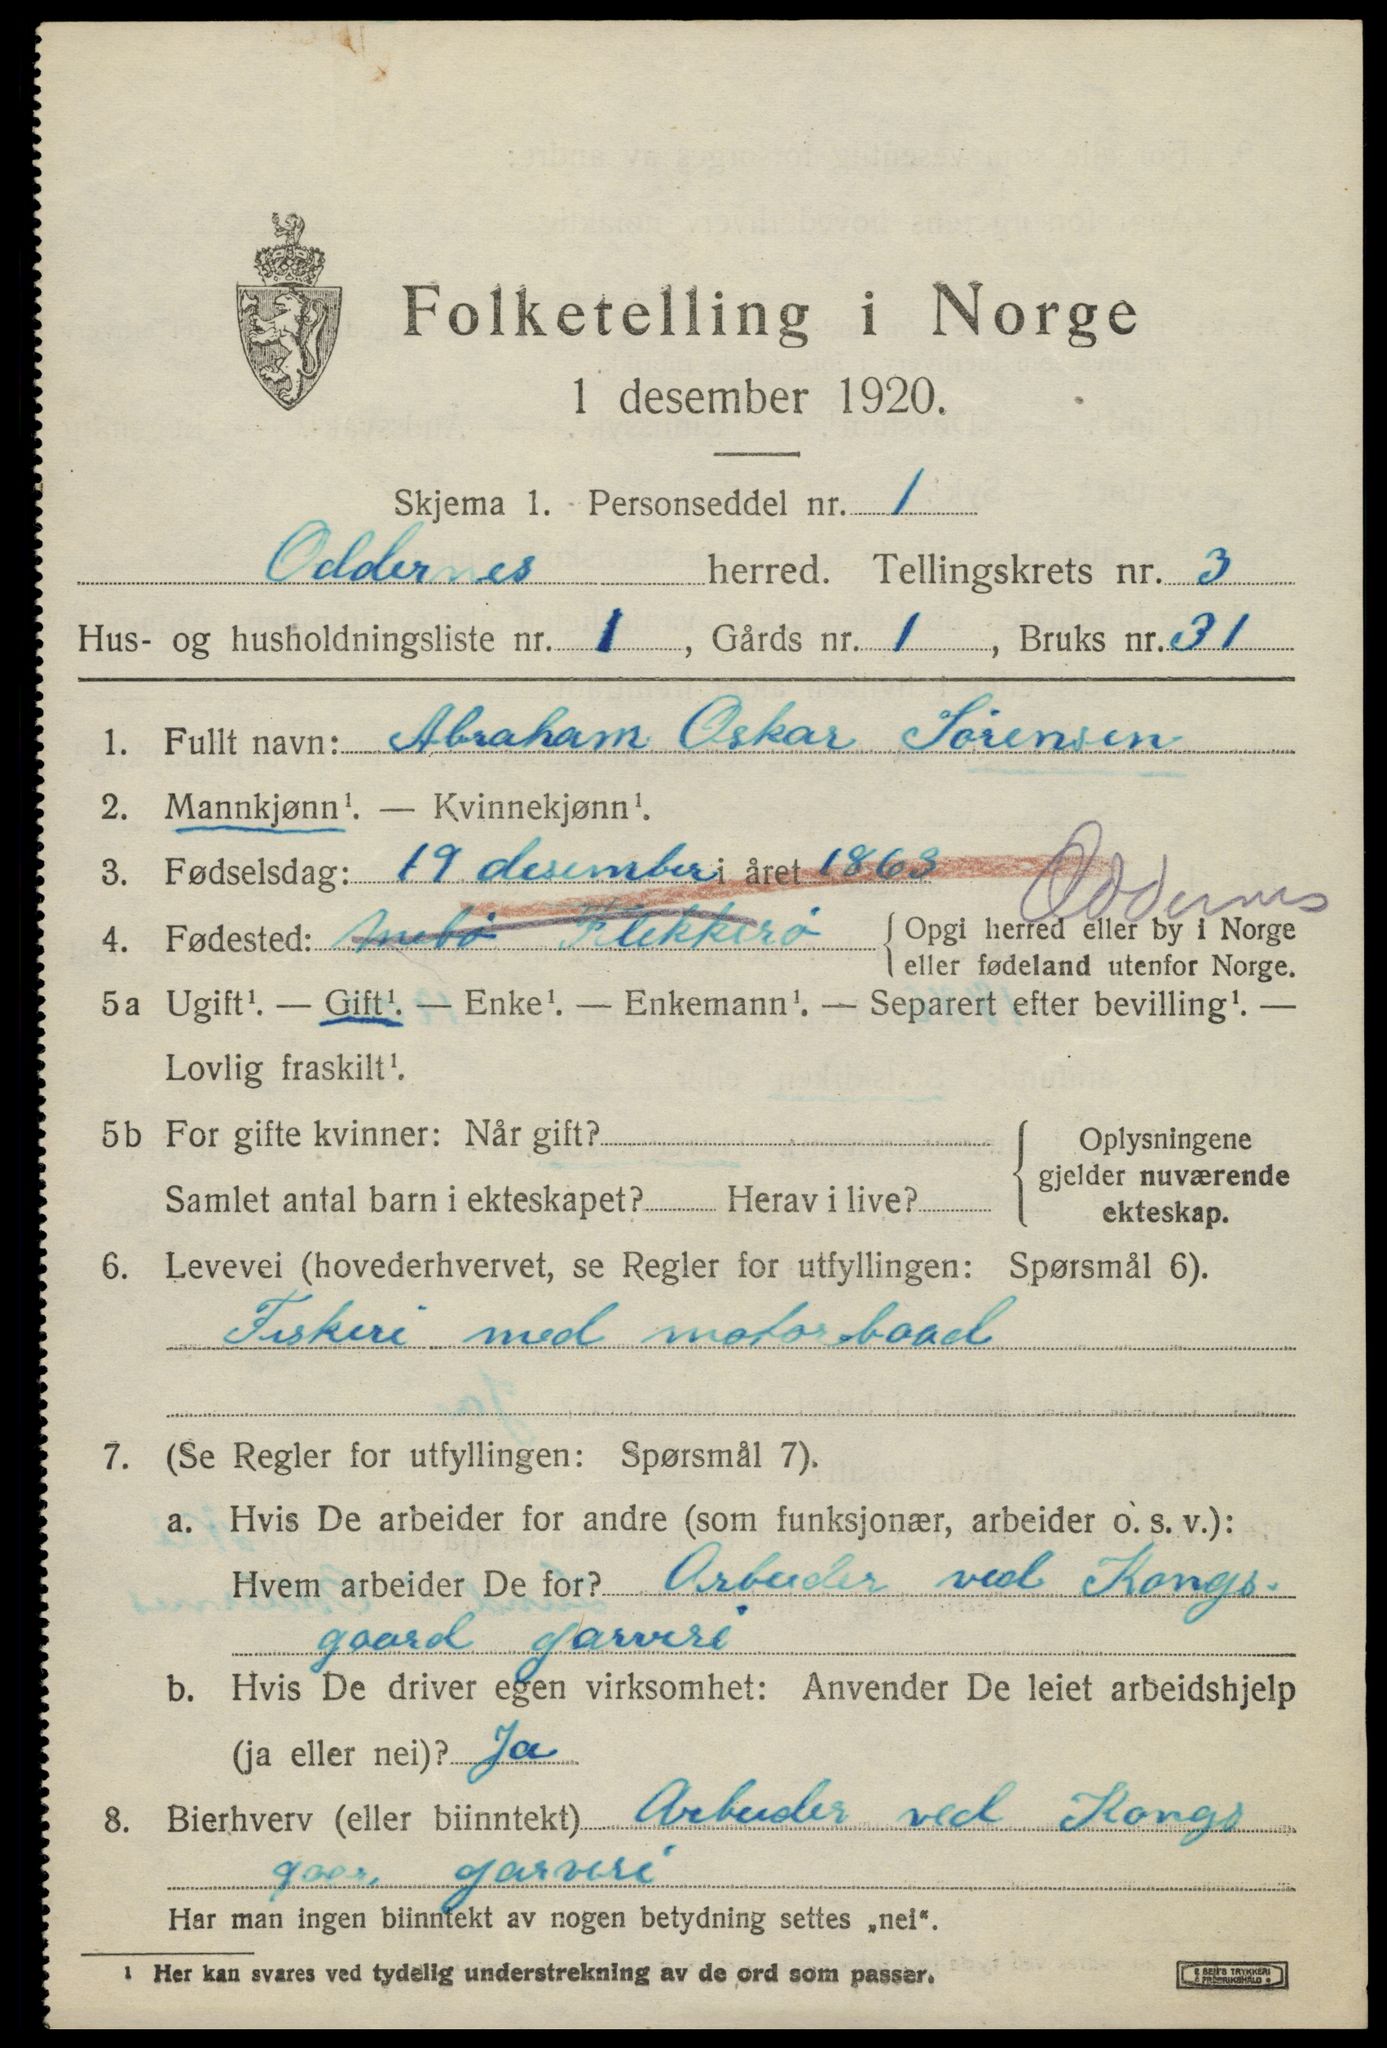 Folketelling i Norge
1 desember 1920.
Skjema 1. Personseddel nr. 1
Oddernes herred. Tellingskrets nr. 3
Hus- og husholdningsliste nr. 1, Gårds nr. 1, Bruks nr. 31
1. Fullt navn: Abraham Oskar Sørensen
2. Mannkjønn¹. — Kvinnekjønn¹.
3. Fødselsdag: 19 desember i året 1863
Oddernes
4. Fødested: Mebø Flekkerø {Opgi herred eller by i Norge
eller fødeland utenfor Norge.
5a Ugift¹. — Gift¹. — Enke¹. — Enkemann¹. — Separert efter bevilling¹. —
Lovlig fraskilt¹.
5b For gifte kvinner: Når gift?
Samlet antal barn i ekteskapet? Herav i live?
{Oplysningene
gjelder nuværende
ekteskap.
6. Levevei (hovederhvervet, se Regler for utfyllingen: Spørsmål 6).
Fiskeri med motorbaad
7. (Se Regler for utfyllingen: Spørsmål 7).
a. Hvis De arbeider for andre (som funksjonær, arbeider o. s. v.):
Hvem arbeider De for? Arbeider ved Kongs-
gaard garveri
b. Hvis De driver egen virksomhet: Anvender De leiet arbeidshjelp
(ja eller nei)? Ja
8. Bierhverv (eller biinntekt) Arbeider ved Kongs
gaar. garveri
Har man ingen biinntekt av nogen betydning settes „nei“.
¹ Her kan svares ved tydelig understrekning av de ord som passer.